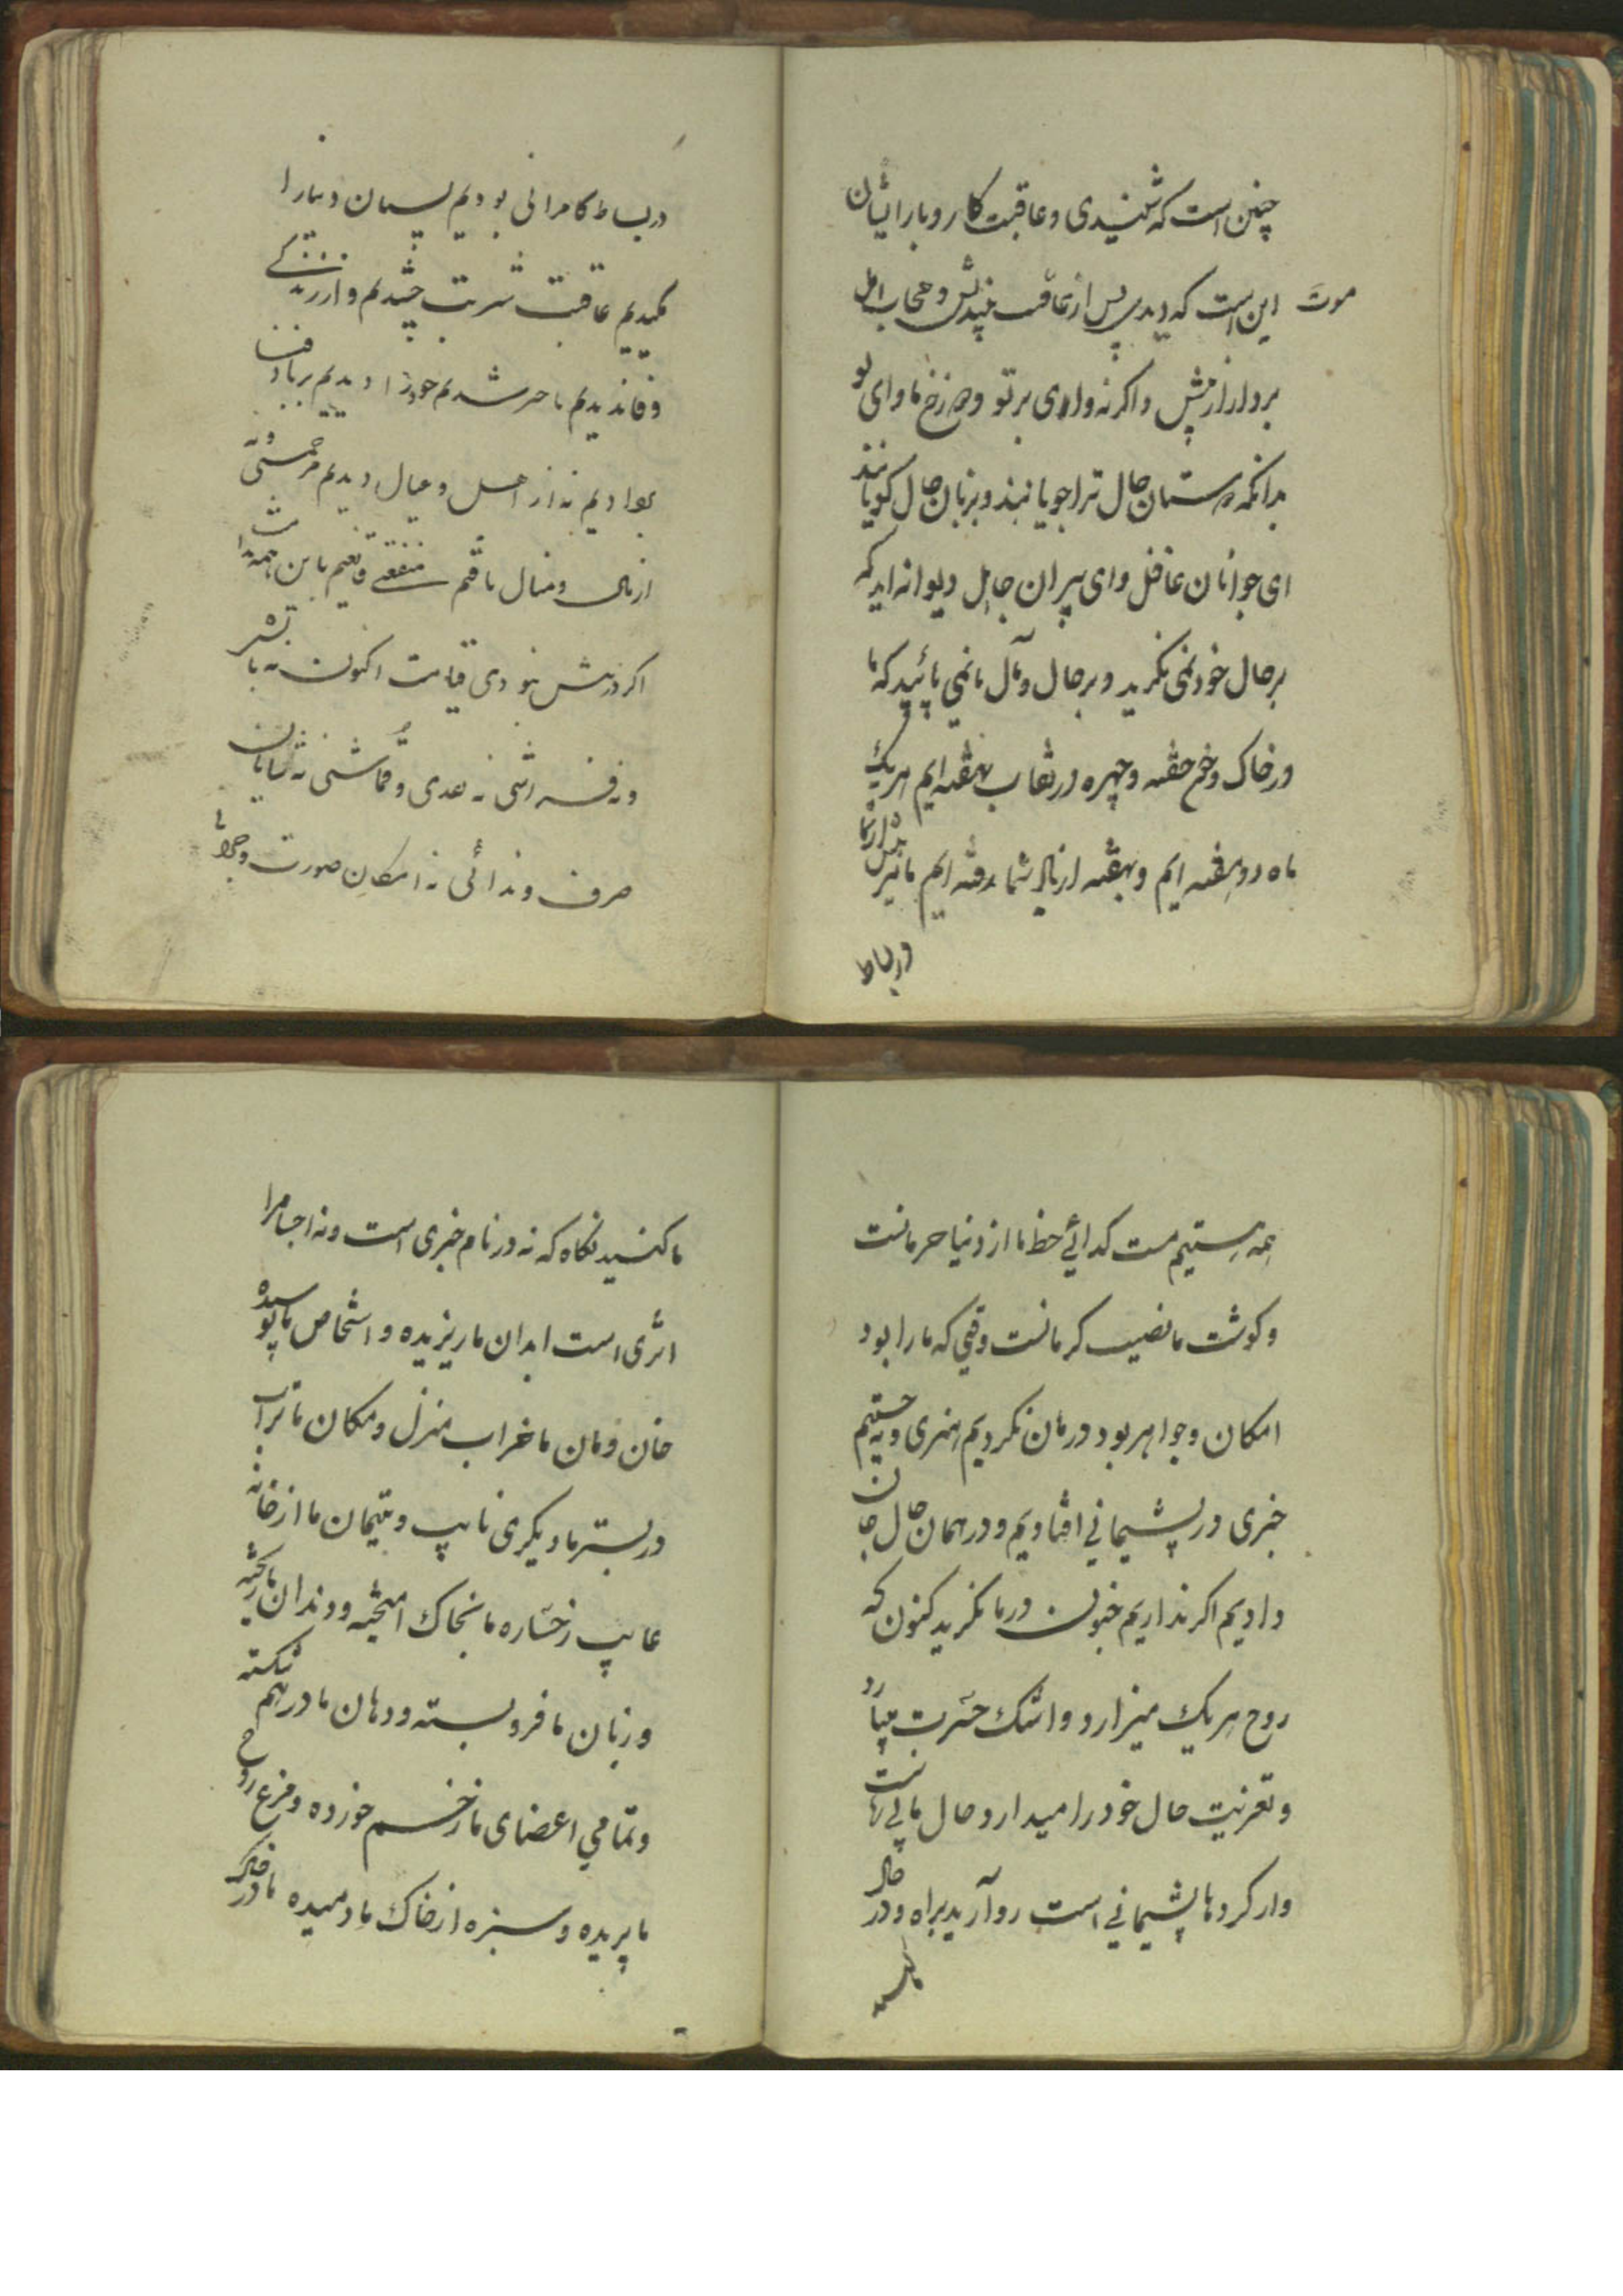 چنین است که شنیدی و عاقبت کار و بار ایشان
موت این است که دیدی پس از عاقبت بیندیش و حجاب امل
بردار از پیش و اگر نه وای بر تو دوزخ ماوای تو
بدانکه دوستان حال ترا جویانند و بزبان حال گویانند
ای جوانان غافل و ای پیران جاهل دیوانه‌اید که
بر حال خود نمی نگرید و بر حال و مآل ما نمی پائید که ما
در خاک و خفته و چهره در نقاب نهفته ایم هریک
ماه دو هفته ایم و بهفته از یاد شما رفته ایم ما نیز پیش از شما
در بساط
در بساط کامرانی بودیم پستان دنیا را
مکیدیم عاقبت شربت چشیدیم و از زندگی
وفا ندیدیم تا خبر شدیم خود را دیدیم برباد فنا
بر دادیم نه از اهل و عیال دیدیم مرحمتی و نه
از مال و منال یافتیم منفعتی قانعیم باین همه ندامت
اگر در پیش نبودی قیامت اکنون نه ما بستر
و نه فراشی نه نقدی و قماشی نه سامان
صرف و ندائی نه امکان صورت و
همه هستیم مست گدائی حظ ما از دنیا حرمانست
و گوشت ما نصیب کرمانست وقتی که ما را بود
امکان و جواهر بود در مان نکردیم هنری و نه جستیم
خبری در پشیمانی افتادیم و در همان حال جان
دادیم اگر ندارید جنون در ما نگرید کنون که
روح هریک میزارد و اشک حسرت میبارد
و تعزیت حال خود را میدارد حال ما بی زبانست
و از کردها پشیمانی است رو آرید براه و در حال
ما کنید نگاه که نه در نام خبری است و نه اجسام را
اثری است ابدان ما ریزیده و اشخاص ما پوسیده
خان و مان ما خراب منزل و مکان ما تراب
در بستر ما دیگری نایب و یتیمان ما از خانه
غایب رخساره ما بخاک آمیخته و دندان ما ریخته
و زبان ما فرو بسته و دهان ما در هم شکسته
و تمامی اعضای ما زخم خورده و مرغ روح
ما پریده و سبزه از خاک ما دمیده ما در خاک